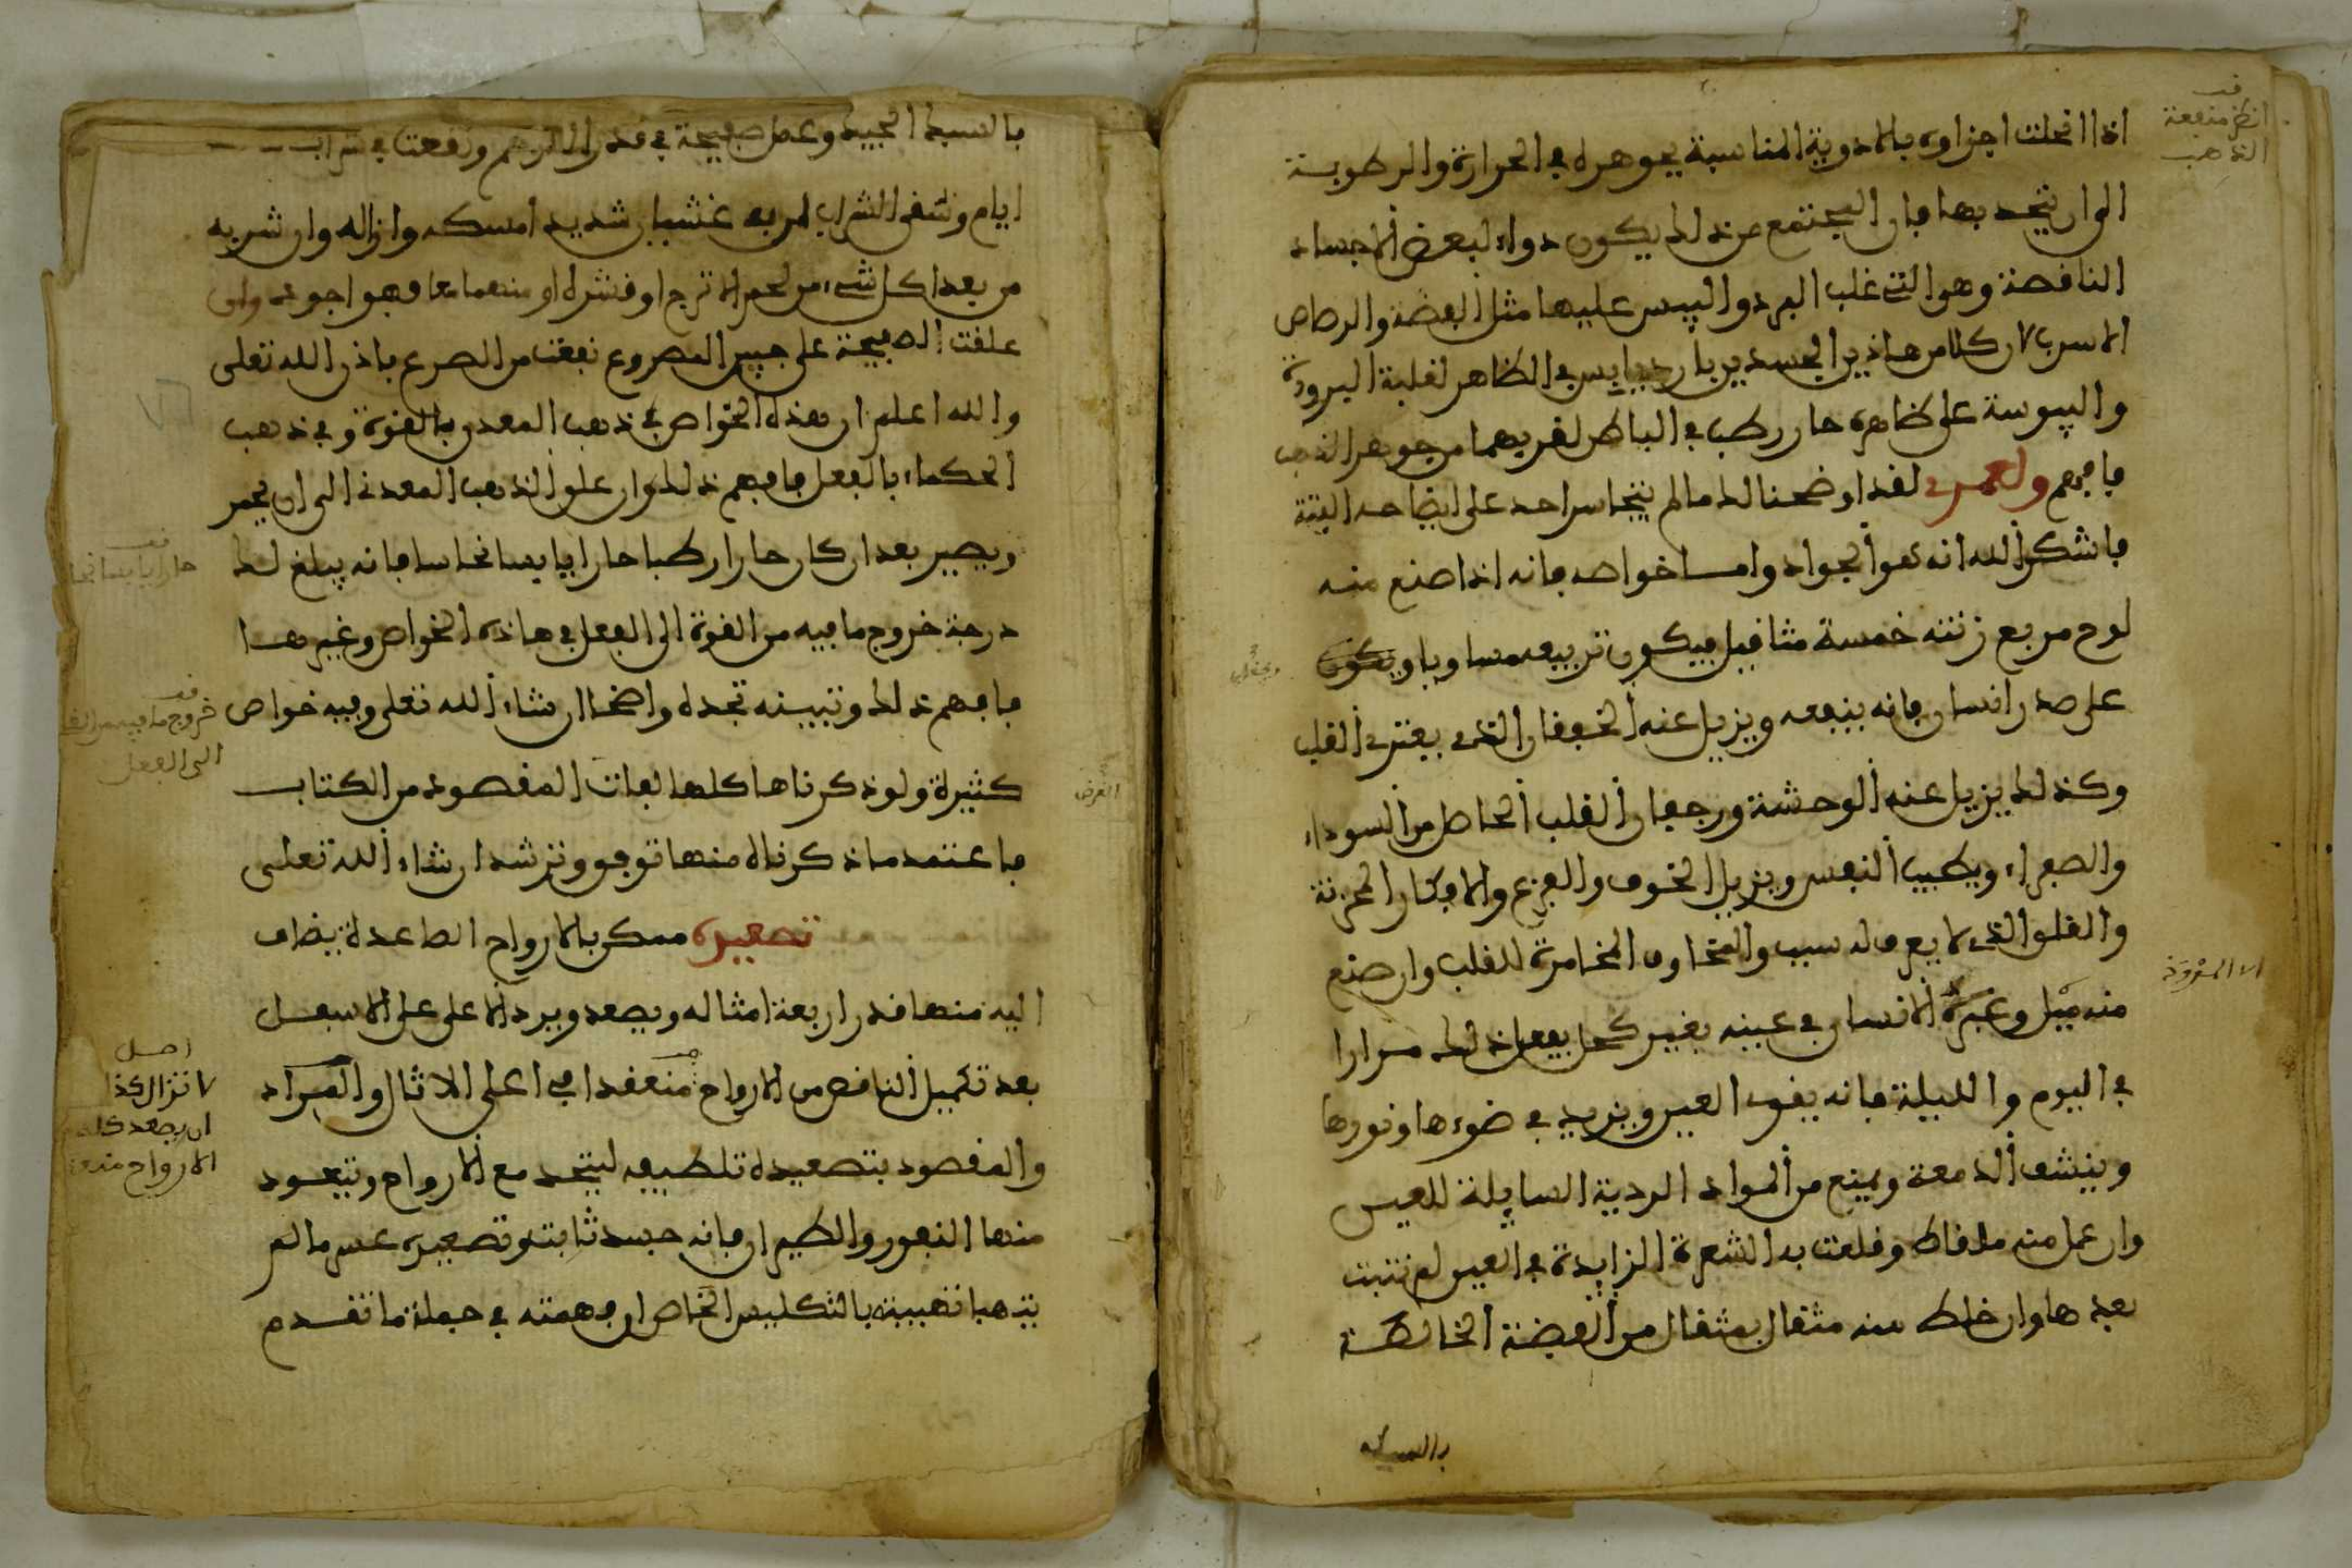 اذا انحلت اجزاوه بالادوية المناسبة بجوهره في الحرارة والرطوبة
الى ان يتحد بها فان المجتمع من ذلك يكون دواء لبعض الاجساد
الناقصة وهو التي غلب البرد واليبس عليها مثل الفضة والرصاص
الاسرب لان كلا من هاذين الجسدين بارد يابس في الظاهر لغلبة البرودة
واليبوسة على ظاهره حار رطب في الباطن لقربهما من جوهر الذهب
فافهم ولعمري لقد اوضحنا لك ما لم يتجاسر احد على ايضاحه البتة
فاشكر الله انه هو الجواد واما خواصه فانه اذا صنع منه
لوح مربع زنته خمسة مثاقيل فيكون تربيعه مساويا ويكون
على صدر انسان فانه ينفعه ويزيل عنه الخفقان الذي يعتري القلب
وكذلك يزيل عنه الوحشة ورجفان القلب الحاصل من السوداء
والصفراء ويطيب النفس ويزيل الخوف والفزع والافكار المحزنة
والقلق الذي لا يعرف له سبب والمخاوف المخامرة للقلب وان صنع
منه ميل وغمزه الانسان في عينه بغير كحل يفعل ذلك مرارا
في اليوم والليلة فانه يقوي العين ويزيد في ضوءها ونورها
وينشف الدمعة ويمنع من المواد الردية السايلة للعين
وان عمل منه ملقاط وقلعت به الشعرة الزايدة في العين لم تنبت
بعدها وان خلط منه مثقال بمثقال من الفضة الخالصة
بالسبك
انظر منفعة
الذهب
بالسبك الجيد وعمل صفيحة في قدر الدرهم ونقعت في شراب
ايام وسقى الشراب لمن به غشيان شديد امسكه وازاله وان شربه
من بعد اكل شيء من لحم الاترج او قشره او منهما معا فهو اجود وان
علقت الصفيحة على جبين المصروع نفعت من الصرع باذن الله تعلى
والله اعلم ان هذه الخواص في ذهب المعدن بالقوة وفي ذهب
الحكماء بالفعل فافهم ذلك وان علق الذهب المعدني الى ان يحمر
ويصير بعد ان كان حارا رطبا حارا يابسا نحاسا فانه يبلغ لك
درجة خروج ما فيه من القوة الى الفعل في هاذه الخواص وغيرها
فافهم ذلك وتبينه تجده واضحا ان شاء الله تعلى وفيه خواص
كثيرة ولو ذكرناها كلها لفات المقصود من الكتاب
فاعتمد ما ذكرناه منها توفق وترشد ان شاء الله تعلى
تصعيره ممكن بالارواح الصاعدة يضاف
اليه منها قدر اربعة امثاله ويصعد ويرد الاعلى على الاسفل
بعد تكميل الناقص من الارواح منعقدا في اعلى الاثال والمراد
والمقصود بتصعيده تلطيفه ليتحد مع الارواح وتتعود
منها النفور والطيران فانه جسد ثابت وتصعيره عسر ما لم
يتهبا تهبيته بالتكليس الخاص ان فهمته في جملة ما تقدم
حارا يابسا نحا
خروج ما فيه من القو
الى الفعل
الغرض
اصل
لا تزال كذا
ان يصعد كله
الارواح منعقد